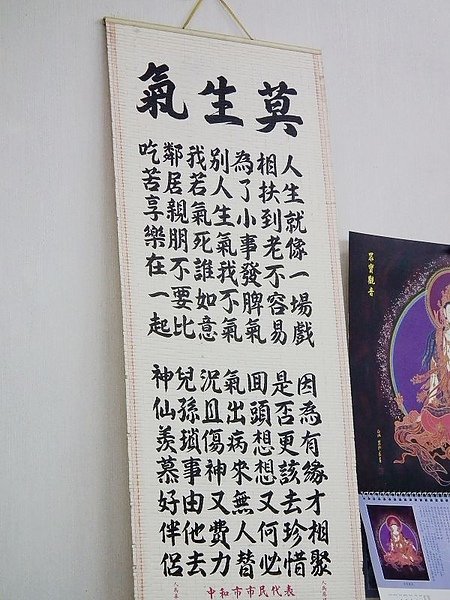 莫生氣
人生就像一場戲
因為有緣才相聚
相扶到老不容易
是否更該去珍惜
為了小事發脾氣
回頭想想又何必
別人生氣我不氣
氣出病來無人替
我若氣死誰如意
況且傷神又費力
鄰居親朋不要比
兒孫瑣事由他去
吃苦享樂在一起
神仙羨慕好伴侶
中和市市民代表
寶觀音